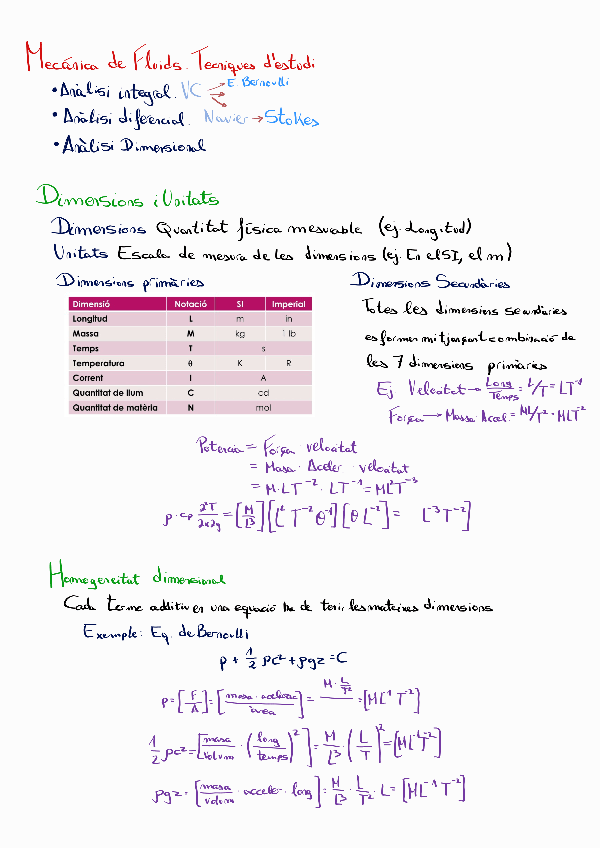 Mecánica de Fluids. Tecniques d'estudi
• Anàlisi integral. VC → E. Bernoulli
• Anàlisi diferencial. Navier → Stokes
• Anàlisi Dimensional
Dimensions i Unitats
Dimensions Quantitat física mesurable (ej. Longitud)
Unitats Escala de mesura de les dimensions (ej. En el SI, el m)
Dimensions primàries
Dimensió Notació SI Imperial
Longitud L m in
Massa M kg 1 lb
Temps T s
Temperatura θ K R
Corrent I A
Quantitat de llum C cd
Quantitat de matèria N mol
Dimensions Secundàries
Totes les dimensions secundàries
es formen mitjançant combinació de
les 7 dimensions primàries
Ej Velocitat → Long/Temps = L/T = LT⁻¹
Força → Massa·Accel. = ML/T² = MLT⁻²
Potencia = Força · velocitat
= Masa · Acceler · velocitat
= M·LT⁻² · LT⁻¹ = ML²T⁻³
ρ·cp ∂²T/∂x∂y = [M/L³][L² T⁻² θ⁻¹][θ L⁻²] = [L⁻³T⁻²]
Homogeneitat dimensional
Cada terme additiu en una equació ha de tenir les mateixes dimensions
Exemple: Eq. de Bernoulli
p + 1/2 ρc² + ρgz = C
p = [F/A] = [masa · acelerac / àrea] = M · L/T² = [ML⁻¹T⁻²]
1/2 ρc² = [masa/volum · (long/temps)²] = M/L³ · (L/T)² = [ML⁻¹T⁻²]
ρgz = [masa/volum · acceler · long] = M/L³ · L/T² · L = [ML⁻¹T⁻²]